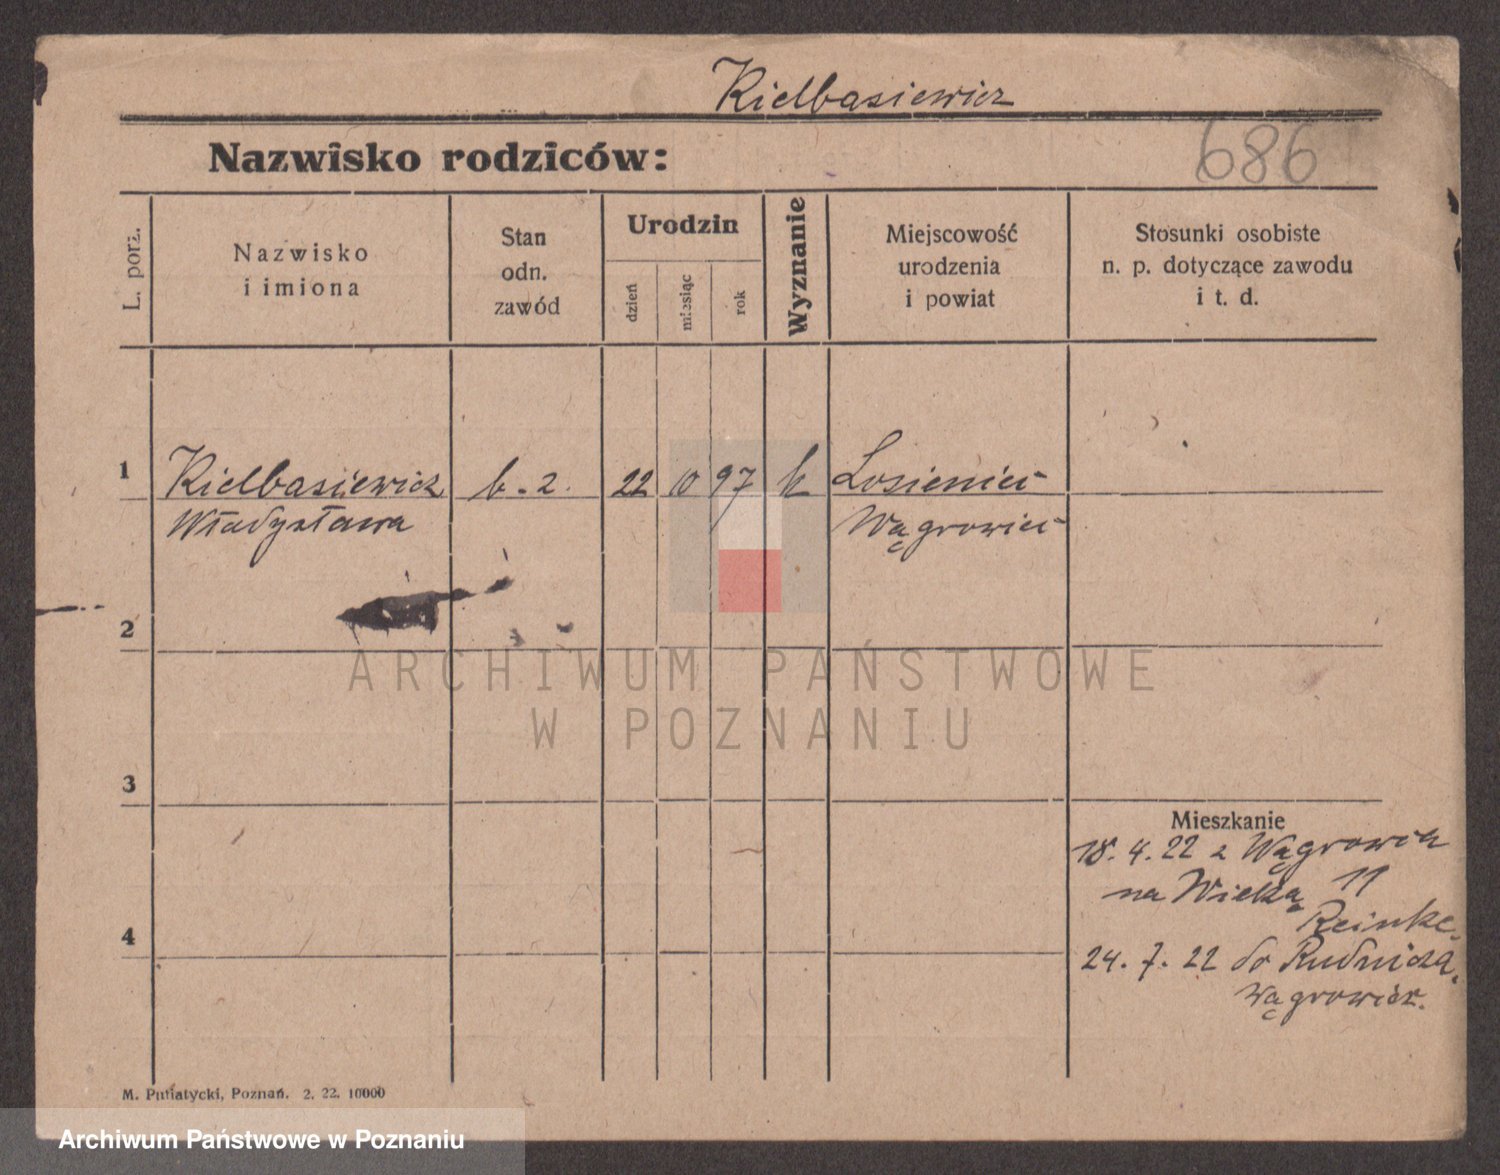 Kielbasiewicz
Nazwisko rodziców:
686
L. porz.
Nazwisko
i imiona
Stan
odn.
zawód
Urodzin
dzień
miesiąc
rok
Wyznanie
Miejscowość
urodzenia
i powiat
Stosunki osobiste
n. p. dotyczące zawodu
i t. d.
1
Kielbasiewicz
Władysława
b. z.
22
10
97
k
Losieniec
Wągrowiec
2
ARCHIWUM PAŃSTWOWE
W POZNANIU
3
Mieszkanie
18. 4. 22 z Wągrowca
na Wielką 11
Reinke.
4
24. 7. 22 do Rudnicza.
Wągrowiec.
M. Putiatycki, Poznań. 2. 22. 10000
Archiwum Państwowe w Poznaniu